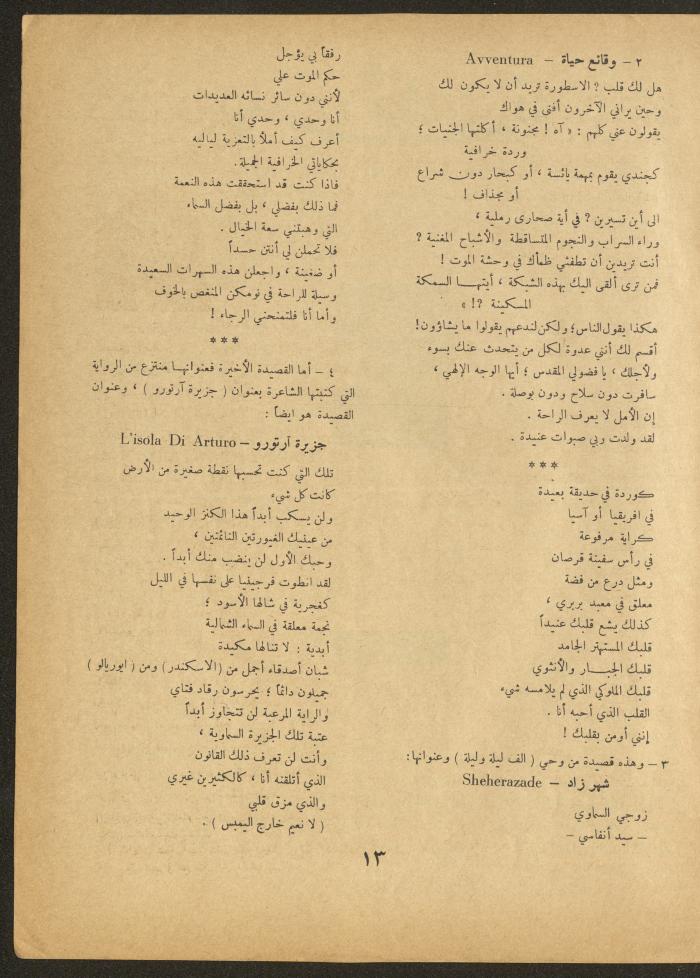 ٢ – وقائع حياة – Avventura
هل لك قلب ? الاسطورة تريد أن لا يكون لك
وحين يراني الآخرون أفنى في هواك
يقولون عني كلهم : « آه ! مجنونة ، أكلتها الجنيات ؛
وردة خرافية
كجندي يقوم بمهمة يائسة ، أو كبحار دون شراع
أو مجذاف !
الى أين تسيرين ? في أية صحارى رملية ،
وراء السراب والنجوم المتساقطة والأشباح المغنية ?
أنت تريدين أن تطفئي ظمأك في وحشة الموت !
فمن ترى ألقى اليك بهذه الشبكة ، أيتها السمكة
المسكينة ?! »
هكذا يقول الناس؛ ولكن لندعهم يقولوا ما يشاؤون!
أقسم لك أنني عدوة لكل من يتحدث عنك بسوء
ولأجلك ، يا فضولي المقدس ؛ أيها الوجه الإلهي ،
سافرت دون سلاح ودون بوصلة .
إن الأمل لا يعرف الراحة .
لقد ولدت وبي صبوات عنيدة .
***
كوردة في حديقة بعيدة
في افريقيا أو آسيا
كراية مرفوعة
في رأس سفينة قرصان
ومثل درع من فضة
معلق في معبد بربري ،
كذلك يشع قلبك عنيداً
قلبك المستهتر الجامد
قلبك الجبار والأنثوي
قلبك الملوكي الذي لم يلامسه شيء
القلب الذي أحبه أنا .
إنني أومن بقلبك !
٣ – وهذه قصيدة من وحي ( الف ليلة وليلة ) وعنوانها:
شهر زاد – Sheherazade
زوجي السماوي
– سيد أنفاسي –
رفقاً بي يؤجل
حكم الموت علي
لأنني دون سائر نسائه العديدات
أنا وحدي ، وحدي أنا
أعرف كيف أملأ بالتعزية لياليه
بحكاياتي الخرافية الجميلة.
فاذا كنت قد استحققت هذه النعمة
فما ذلك بفضلي ، بل بفضل السماء
التي وهبتني سعة الخيال .
فلا تحملن لي أنتن حسداً
أو ضغينة ، واجعلن هذه السهرات السعيدة
وسيلة للراحة في نومكن المنغص بالخوف
وأما أنا فلتمنحني الرجاء !
***
٤ – أما القصيدة الأخيرة فعنوانها منتزع من الرواية
التي كتبتها الشاعرة بعنوان ( جزيرة آرتورو ) ، وعنوان
القصيدة هو ايضاً :
جزيرة آرتورو – L'isola Di Arturo
تلك التي كنت تحسبها نقطة صغيرة من الأرض
كانت كل شيء
ولن يسكب أبداً هذا الكنز الوحيد
من عينيك الغيورتين النائمتين ،
وحبك الأول لن ينضب منك أبداً .
لقد انطوت فرجينيا على نفسها في الليل
كغجرية في شالها الأسود ؛
نجمة معلقة في السماء الشمالية
أبدية : لا تنالها مكيدة
شبان أصدقاء أجمل من (الاسكندر) ومن ( ايوريالو )
جميلون دائماً ؛ يحرسون رقاد فتاي
والراية المرعبة لن تتجاوز أبداً
عتبة تلك الجزيرة السماوية ،
وأنت لن تعرف ذلك القانون
الذي أتلقنه أنا ، كالكثيرين غيري
والذي مزق قلبي
( لا نعيم خارج اليمبس ) .
١٣